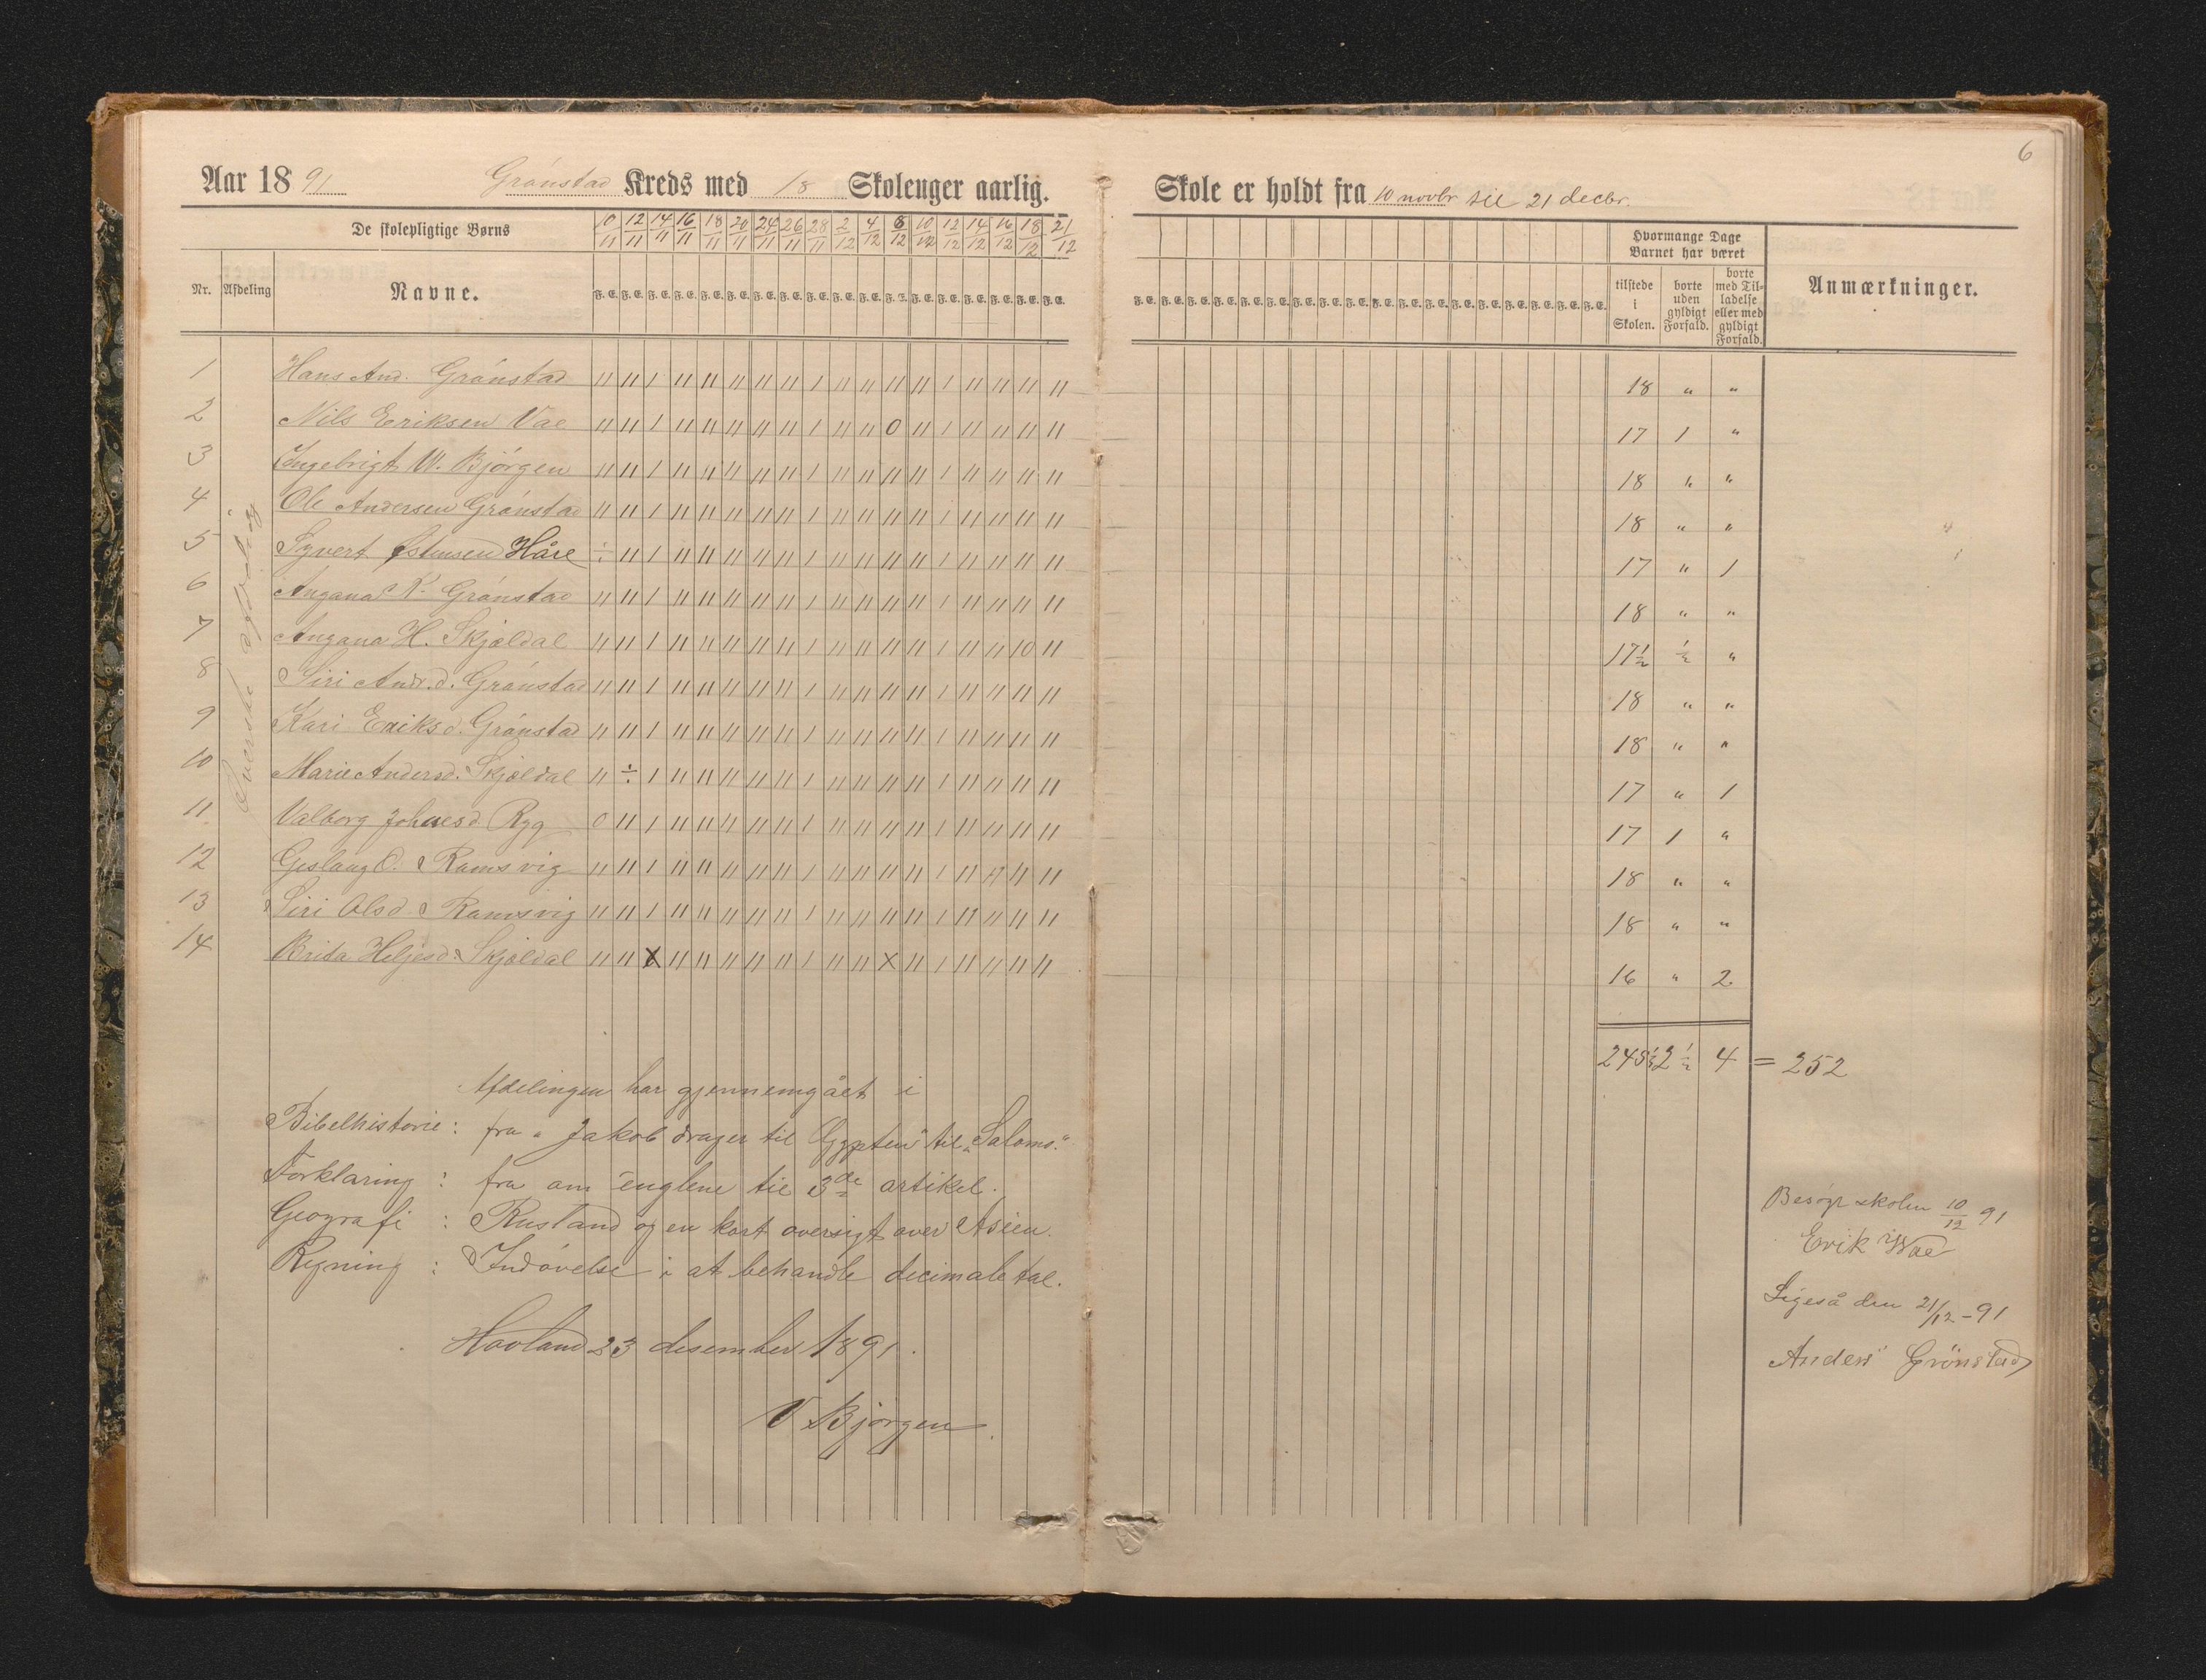 6
Aar 18 91 Grönstad Kreds med 18 Skolenger aarlig. Skole er holdt fra 10 novbr til 21 decbr.
De skolepligtige Børns 10/11 12/11 14/11 16/11 18/11 20/11 24/11 26/11 28/11 2/12 4/12 8/12 10/12 12/12 14/12 16/12 18/12 21/12
Hvormange Dage Barnet har været
Nr. Afdeling Navne. F. E. F. E. F. E. F. E. F. E. F. E. F. E. F. E. F. E. F. E. F. E. F. E. F. E. F. E. F. E. F. E. F. E. F. E. tilstede i Skolen. borte uden gyldigt Forfald. borte med Tilladelse eller med gyldigt Forfald. Anmærkninger.
Øverste afdeling
1 Hans And. Grönstad 11 11 1 11 11 11 11 11 1 11 11 11 11 1 11 11 11 11 18 " "
2 Nils Eriksen Vae 11 11 1 11 11 11 11 11 1 11 11 0 11 1 11 11 11 11 17 1 "
3 Ingebrigt W. Bjørgen 11 11 1 11 11 11 11 11 1 11 11 11 11 1 11 11 11 11 18 " "
4 Ole Andersen Grönstad 11 11 1 11 11 11 11 11 1 11 11 11 11 1 11 11 11 11 18 " "
5 Syvert Østensen Håre ÷ 11 1 11 11 11 11 11 1 11 11 11 11 1 11 11 11 11 17 " 1
6 Angana K. Grönstad 11 11 1 11 11 11 11 11 1 11 11 11 11 1 11 11 11 11 18 " "
7 Angana H. Skjældal 11 11 1 11 11 11 11 11 1 11 11 11 11 1 11 11 10 11 17½ ½ "
8 Siri Andr.d. Grönstad 11 11 1 11 11 11 11 11 1 11 11 11 11 1 11 11 11 11 18 " "
9 Kari Eriksd. Grönstad 11 11 1 11 11 11 11 11 1 11 11 11 11 1 11 11 11 11 18 " "
10 Marie Andersd. Skjældal 11 ÷ 1 11 11 11 11 11 1 11 11 11 11 1 11 11 11 11 17 " 1
11 Valborg Johnesd. Ryg 0 11 1 11 11 11 11 11 1 11 11 11 11 1 11 11 11 11 17 1 "
12 Geslaug O. Ramsvig 11 11 1 11 11 11 11 11 1 11 11 11 11 1 11 11 11 11 18 " "
13 Siri Olsd. Ramsvig 11 11 1 11 11 11 11 11 1 11 11 11 11 1 11 11 11 11 18 " "
14 Brita Heljesd. Skjældal 11 11 X 11 11 11 11 11 1 11 11 X 11 1 11 11 11 11 16 " 2
245½ 2½ 4 = 252
Afdelingen har gjennemgået i
Bibelhistorie: fra "Jakob drager til Ægypten" til "Salomo."
Forklaring : fra om englene til 3de artikel.
Geografi : Rusland og en kort oversigt over Asien.
Regning : Indøvelse i at behandle decimaletal.
Havland 23 desember 1891.
V Bjørgen.
Besøgt skolen 10/12 91
Erik Wae
Ligeså den 21/12-91
Anders Grönstad